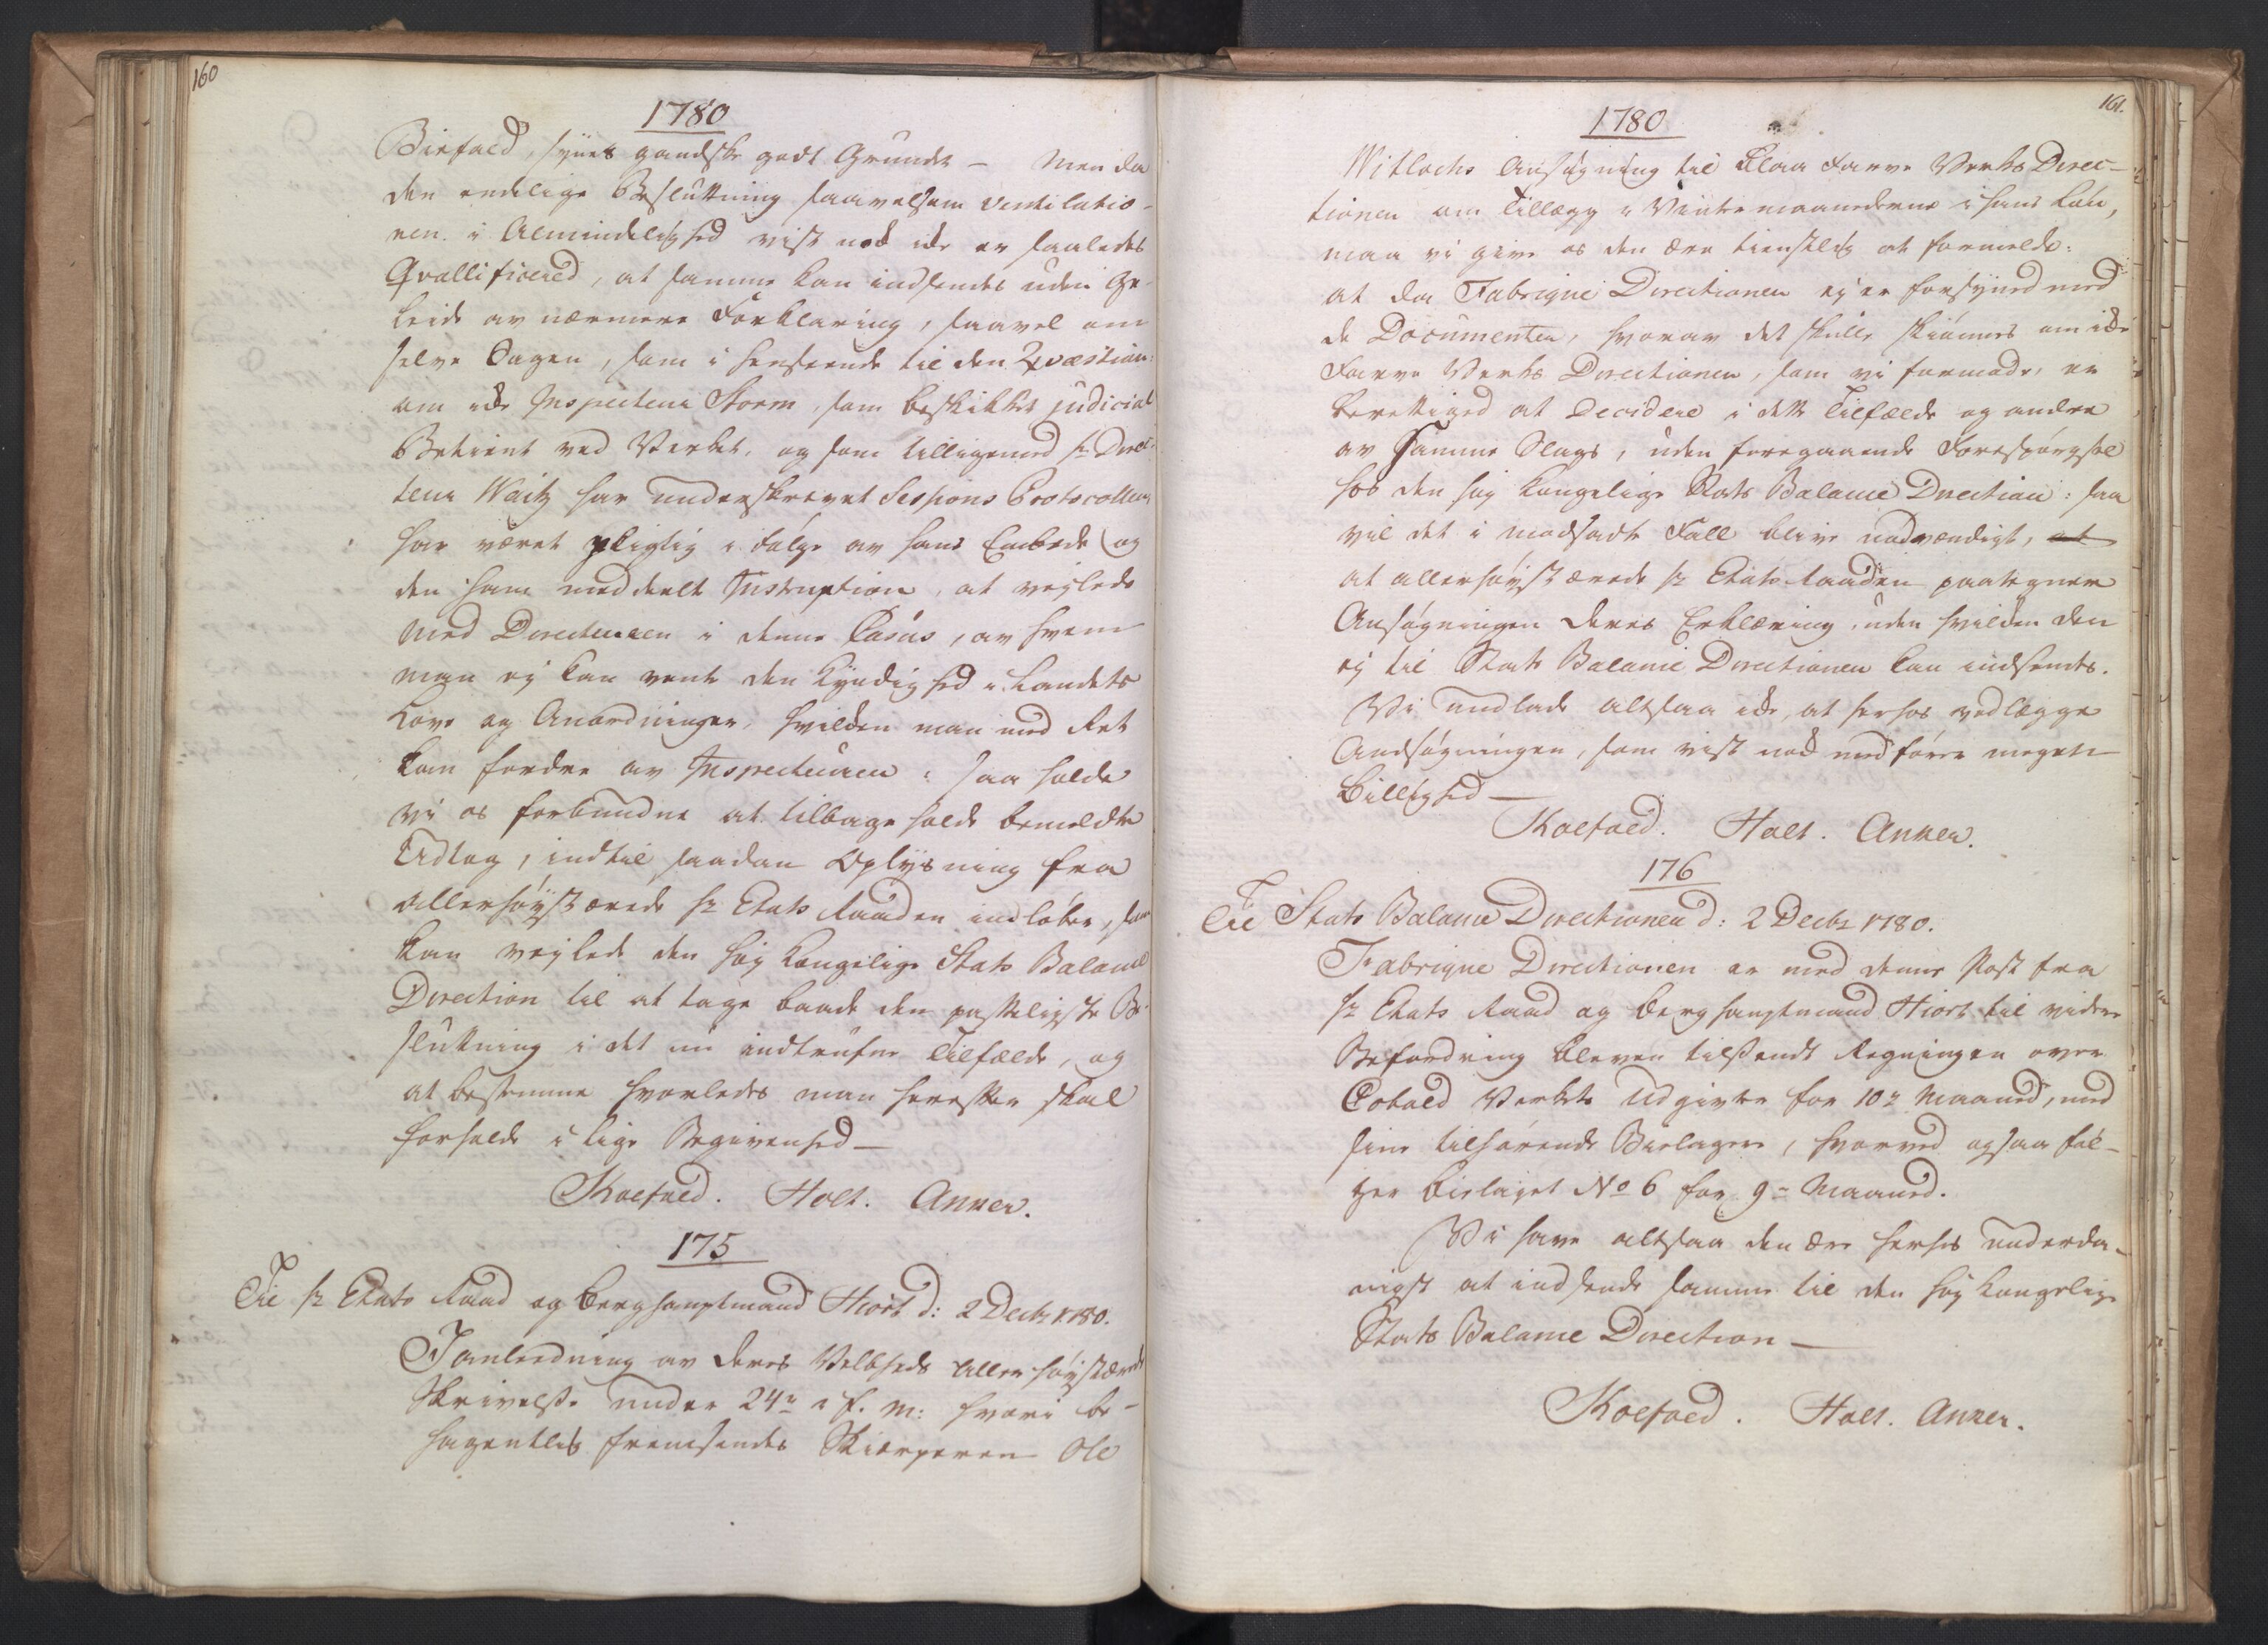 160
1780
Biefald, synes gandske godt Grundet – Men da
den endelige Besluttning saavelsom Ventilatio-
nen i Almindelighed vist nok ikke er saaledes
Qvallificered, at samme kan indsendes uden Ge-
leide av nærmere Forklaring, saavel om
selve Sagen, som i Henseende til den Qvæstion:
om ikke Inspecteur Storm, som beskikket judicial
Betient ved Verket, og som tilligemed Hr Direc-
teur Waitz har underskrevet Sessions Protocollen
har været pligtig i Følge av hans Embede (og
den ham meddeelt Instruption, at vejlede
med Directeuren i denne Casus, av hvem
man ej kan vente den Kyndighed i Landets
Love og Anordninger, hvilken man med Ret
kan fordre av Inspecteuren: saa holde
vi os forbundne at tilbage holde bemeldte
Udtog, indtil saadan Oplysning fra
allerhøystærede Hr Etats Raaden indløber, som
kan vejlede den høy Kongelige Stats Balance
Direction til at tage baade den passeligste Be-
sluttning i det nu indtrufne Tilfælde, og
at bestemme hvorledes man herefter skal
forholde i lige Begivenhed –
Koefoed. Holt. Anker.
175
Til Hr Etats Raad og Berghauptmand Hiort d: 2 Decbr 1780.
I anledning av Deres Velbheds allerhøystærede
Skrivelse under 24r i f. M: hvori be-
hagentlig fremsendes Skierperen Ole
161.
1780
Witlochs Ansøgning til Blaa Farve Verks Direc-
tionen om Tillæg i Vintermaanederne i hans Løn,
maa vi give os den ære tienstlig at formelde:
at da Fabrique Directionen ej er forsyned med
de Documenter, hvorav det skulle skiønnes om ikke
Farve Verks Directionen, som vi formode, er
berettiged at Decidere i dette Tilfælde og andre
av samme Slags, uden foregaaende Forespørgsel
hos den høy Kongelige Stats Balance Direction: saa
vil det i modsadt Fald blive nødvendigt, at
at allerhøystærede Hr Etats Raaden paategner
Ansøgningen Deres Erklæring, uden hvilken den
ej til Stats Balance Directionen kan indsendes.
Vi undlade altsaa ikke, at herhos vedlægge
Andsøgningen, som vist nok medfører megen
Billighed –
Koefoed. Holt. Anker.
176
Til Stats Balance Directionen d: 2 Decbr 1780.
Fabrique Directionen er med denne Post fra
Hr Etats Raad og Berghauptmand Hiort til videre
Befordring bleven tilsendt Regningen over
Cobold Verkets Udgivter for 10r Maaned, med
sine tilhørende Bielager, hvorved ogsaa føl-
ger Bielaget No 6 for 9r Maaned.
Vi have altsaa den Ære herhos underda-
nigst at indsende samme til den høy Kongelige
Stats Balance Direction –
Koefoed. Holt. Anker.